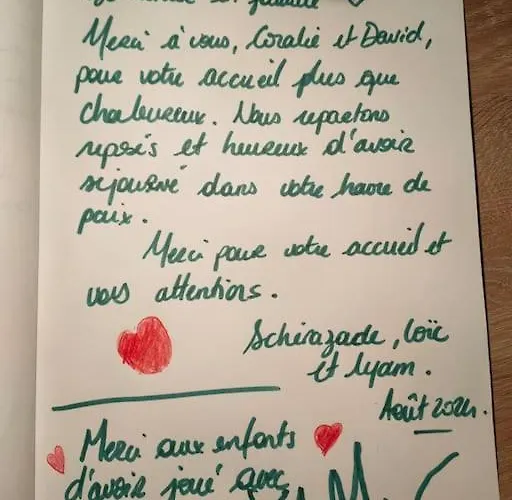 et famille
Merci à vous, Coralie et David,
pour votre accueil plus que
chaleureux. Nous repartons
reposés et heureux d'avoir
séjourné dans votre havre de
paix.
Merci pour votre accueil et
vos attentions.
Schérazade, Loïc
et Lyam.
Août 2024.
Merci aux enfants
d'avoir joué avec